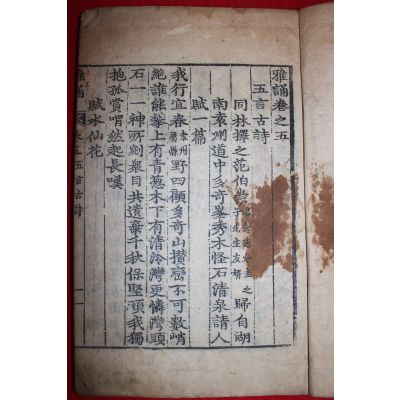 雅誦卷之五
五言古詩
同林擇之范伯崇歸自湖
南袁州道中多奇峯秀木怪石清泉請人
賦一篇
我行宜春野四顧多奇山攢巒不可數峭
絶誰能攀上有青葱木下有清泠灣更憐灣頭
石一一神所剜衆目共遺棄千秋保堅頑我獨
抱孤賞喟然起長嘆
賦水仙花
雅誦
五言古詩